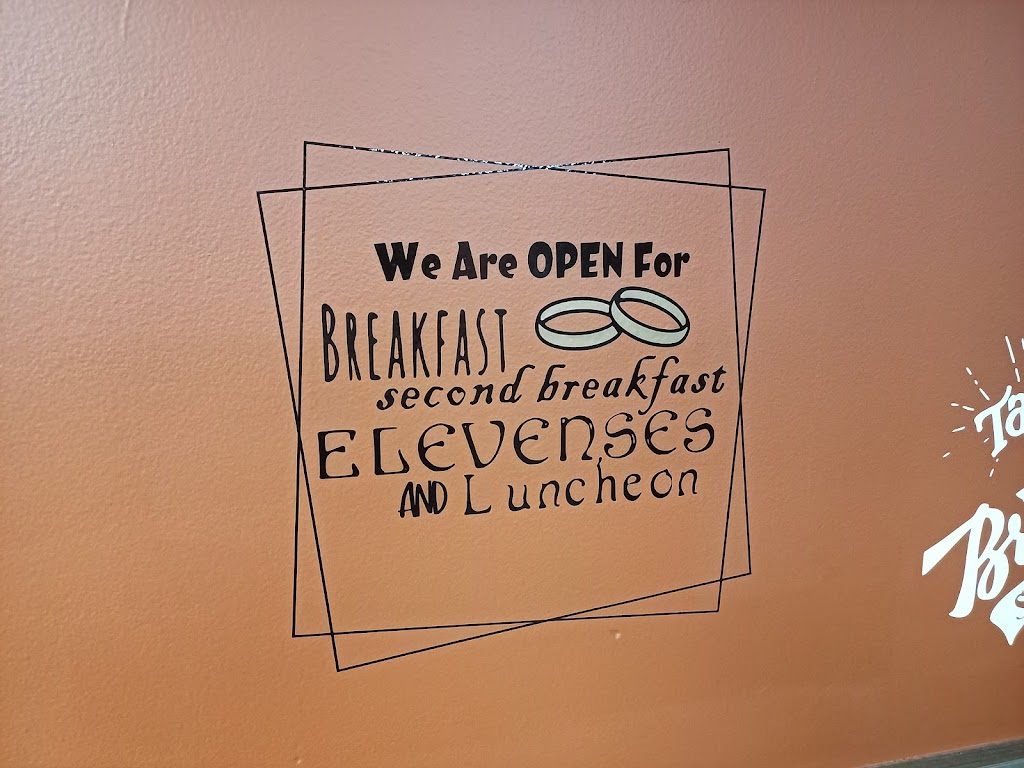 We Are OPEN For
BREAKFAST
second breakfast
ELEVENSES
AND Luncheon